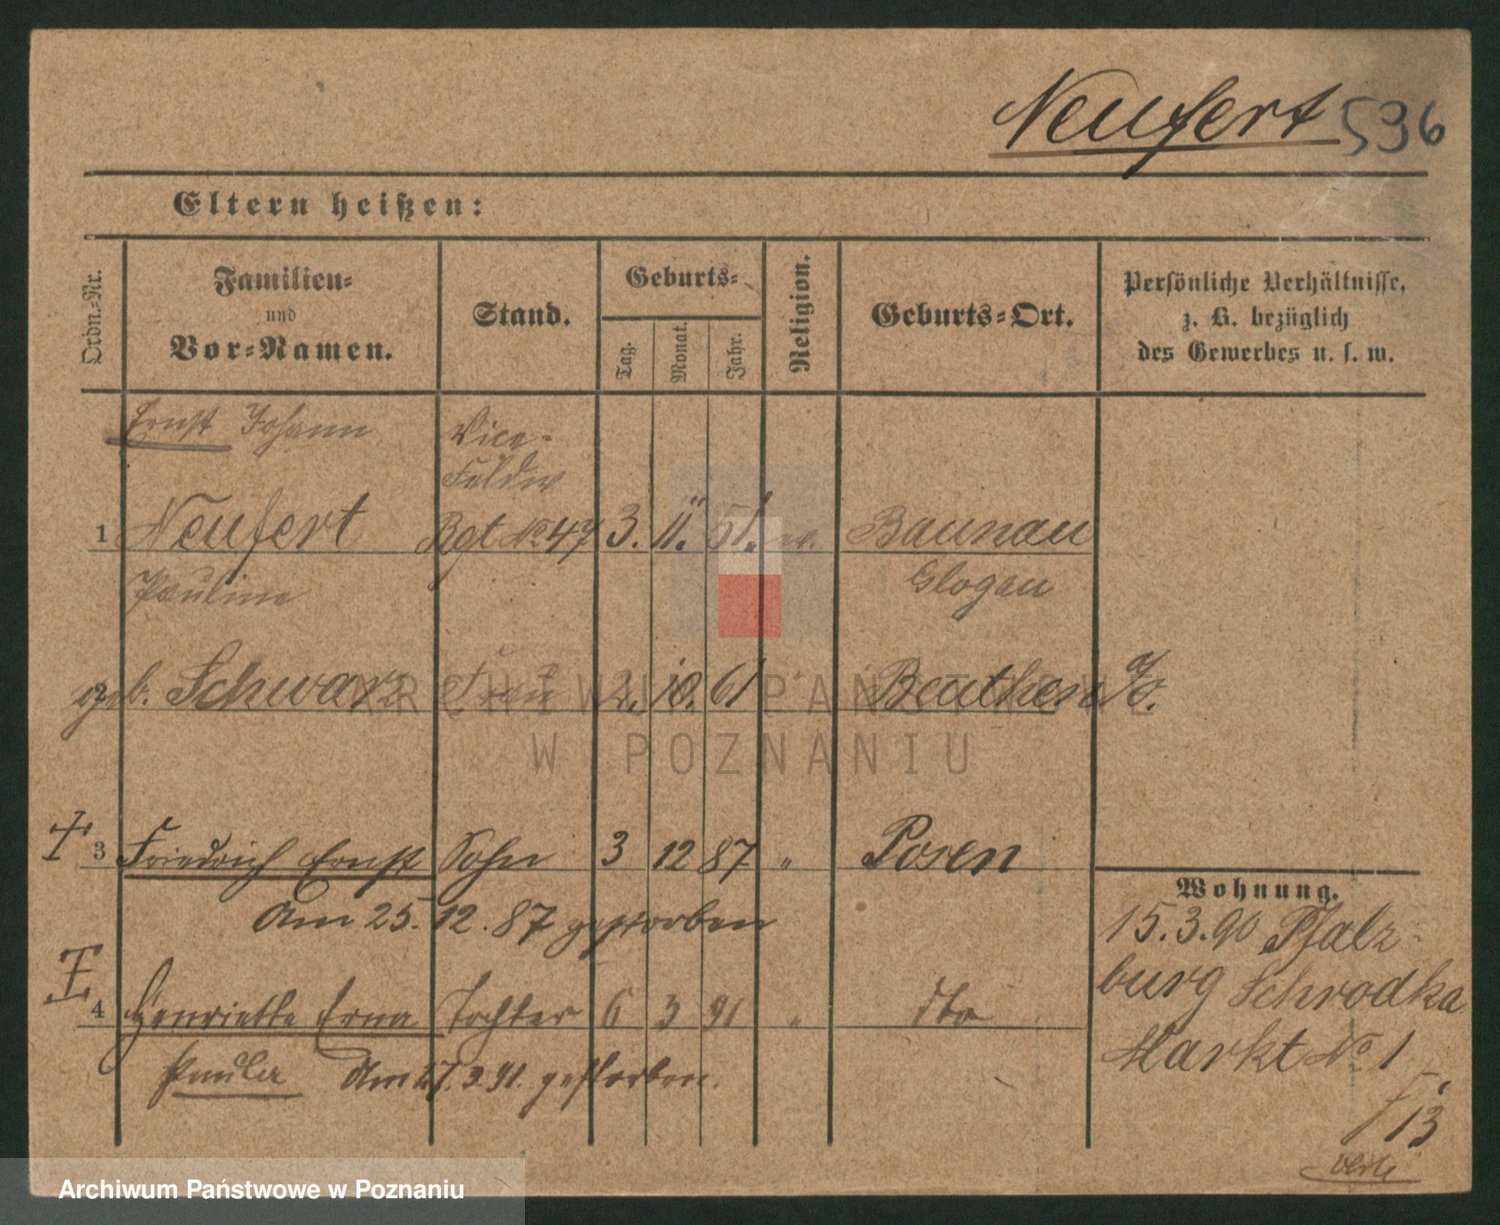 Neufert 596
Eltern heißen:
Ordn.-Nr.
Familien-
und
Vor-Namen.
Stand.
Geburts-
Tag.
Monat.
Jahr.
Religion.
Geburts-Ort.
Persönliche Verhältnisse,
z. B. bezüglich
des Gewerbes u. s. w.
Ernst Johann Vice-
Feldw
1 Neufert Rgt No. 47 3. 11. 51. ev. Baunau
Pauline Glogau
geb. Schwarz Frau 2. 10. 61 " Beuthen
3 Friedrich Ernst Sohn 3 12 87 " Posen
Am 25. 12. 87 gestorben
4 Henriette Erna Tochter 6 3 91 " dto
Am 27. 3. 91. gestorben.
Wohnung.
15. 3. 90 Pfalz-
burg Schrodka
Markt No 1
13
ARCHIWUM PAŃSTWOWE
W POZNANIU
Archiwum Państwowe w Poznaniu